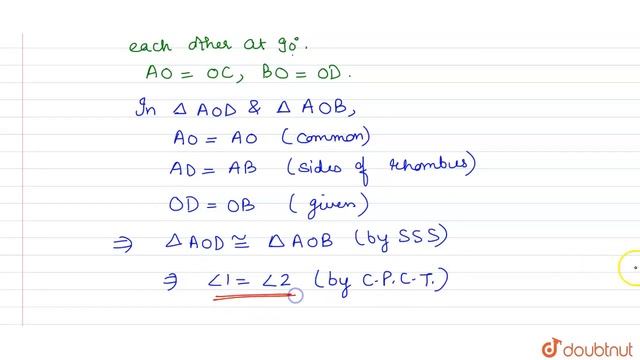 each other at 90°.
AO = OC, BO = OD.
In △ AOD & △ AOB,
AO = AO (common)
AD = AB (sides of rhombus)
OD = OB (given)
⇒ △ AOD ≅ △ AOB (by SSS)
⇒ ∠1 = ∠2 (by C.P.C.T.)
doubtnut